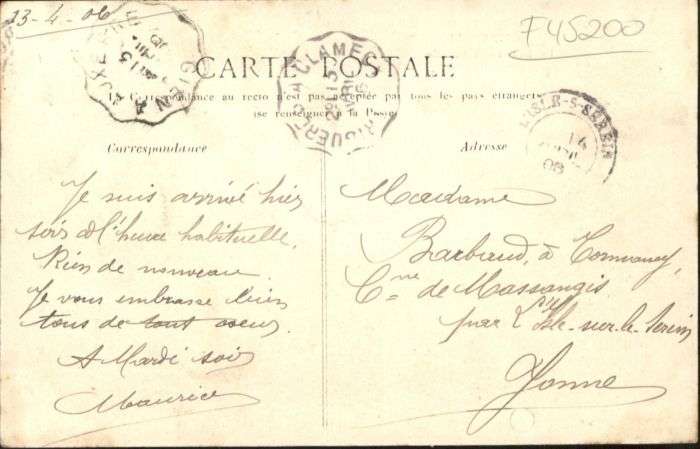 13-4-06
F45200
GIEN A AUXERRE
CLAMECY
2E
15
AVRIL
L'ISLE-S-SEREIN
14
06
CARTE POSTALE
La Correspondance au recto n'est pas acceptée par tous les pays étrangers
(se renseigner à la Poste)
Correspondance
Adresse
Je suis arrivé hier
soir à l'heure habituelle.
Rien de nouveau.
Je vous embrasse bien
tous de tout coeur.
A Mardi soir
Maurice
Madame
Barbaud, à
Cne de Massangis
par l'Isle-sur-le-Serein
Yonne